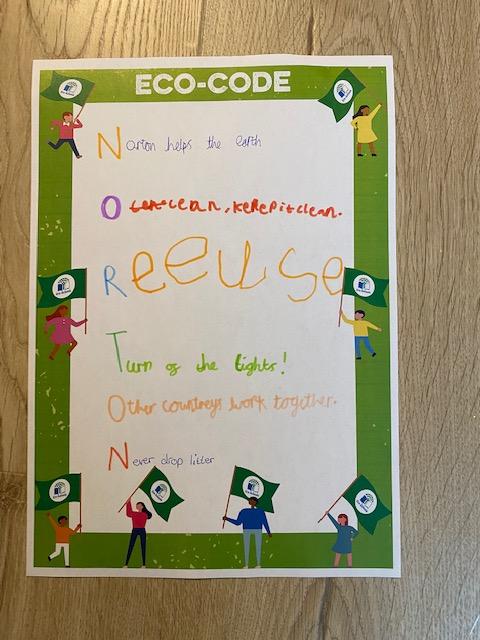 ECO-CODE
Norton helps the earth
O clean, keRep it clean.
Reeuse
Turn of the lights!
Other countreys work together.
Never drop litter